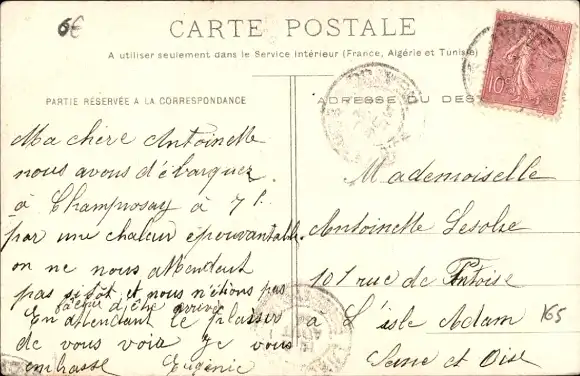 6€
CARTE POSTALE
A utiliser seulement dans le Service Intérieur (France, Algérie et Tunisie)
10c
PARTIE RÉSERVÉE A LA CORRESPONDANCE
ADRESSE DU DEST
Ma chère Antoinette
nous avons débarquez
à Champrosay à 7h
par une chaleur épouvantable
on ne nous attendait
pas sitôt et nous n'étions pas
d'être arrivé
En attendant le plaisir
de vous voir Je vous
embrasse Eugénie
Mademoiselle
Antoinette
101 rue de Pontoise
a L'isle Adam
Seine et Oise
165